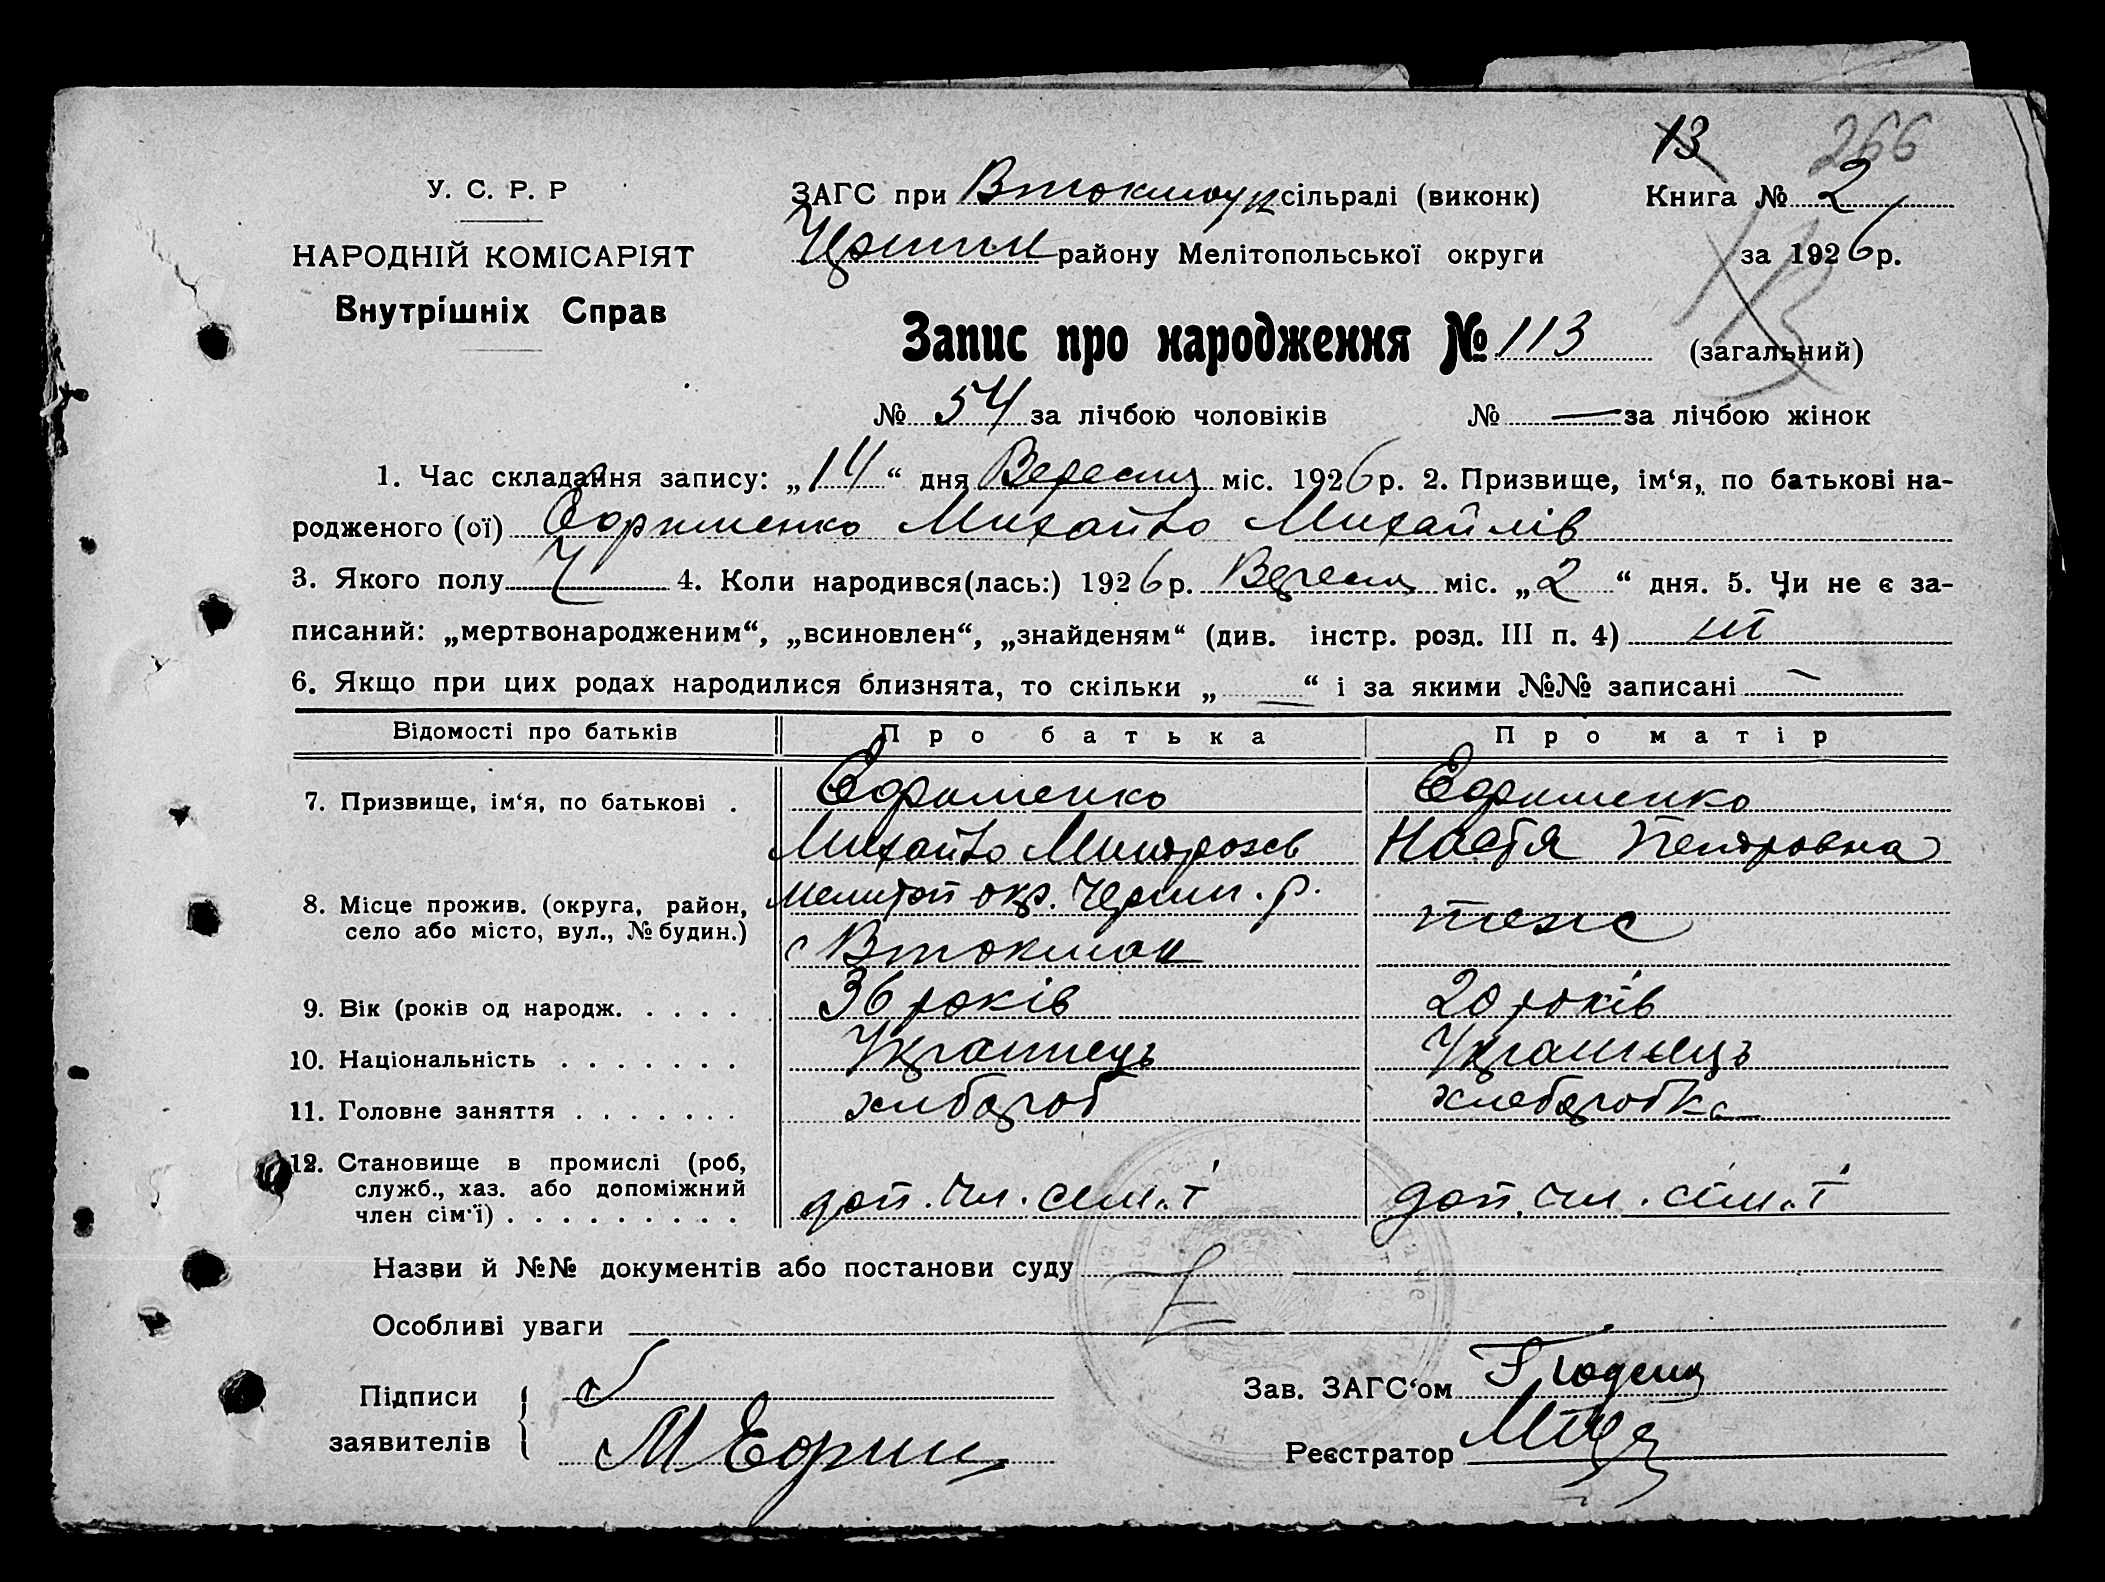 13 266
У. С. Р. Р
ЗАГС при Втокмаук сільраді (виконк) Книга № 2
НАРОДНІЙ КОМІСАРІЯТ
району Мелітопольської округи за 1926 р.
Внутрішніх Справ
113
Запис про народження № 113 (загальний)
№ 54 за лічбою чоловіків № — за лічбою жінок
1. Час складання запису: „14“ дня Вересня міс. 1926 р. 2. Призвище, ім‘я, по батькові на-
родженого (ої) Єфрименко Михайло Михайлів
3. Якого полу Ч 4. Коли народився(лась:) 1926 р. Вересня міс. „2“ дня. 5. Чи не є за-
писаний: „мертвонародженим“, „всиновлен“, „знайденям“ (див. інстр. розд. III п. 4)
6. Якщо при цих родах народилися близнята, то скільки „ — “ і за якими №№ записані —
Відомості про батьків Про батька Про матір
7. Призвище, ім‘я, по батькові . Єфрименко Єфрименко
Михайло Настя Петровна
8. Місце прожив. (округа, район, Мелитоп окр. р.
село або місто, вул., № будин.) с Втокмак тоже
9. Вік (років од народж. . . . . 36 років 20 років
10. Національність . . . . . . . Українець Українець
11. Головне заняття . . . . . . . хлібороб хлеборобка
12. Становище в промислі (роб,
служб., хаз. або допоміжний доп. чл. сем.ї доп. чл. сім.ї
член сім‘ї) . . . . . . . . .
Назви й №№ документів або постанови суду
Особливі уваги
Підписи
заявителів М Ефрим
Зав. ЗАГС‘ом
Реєстратор